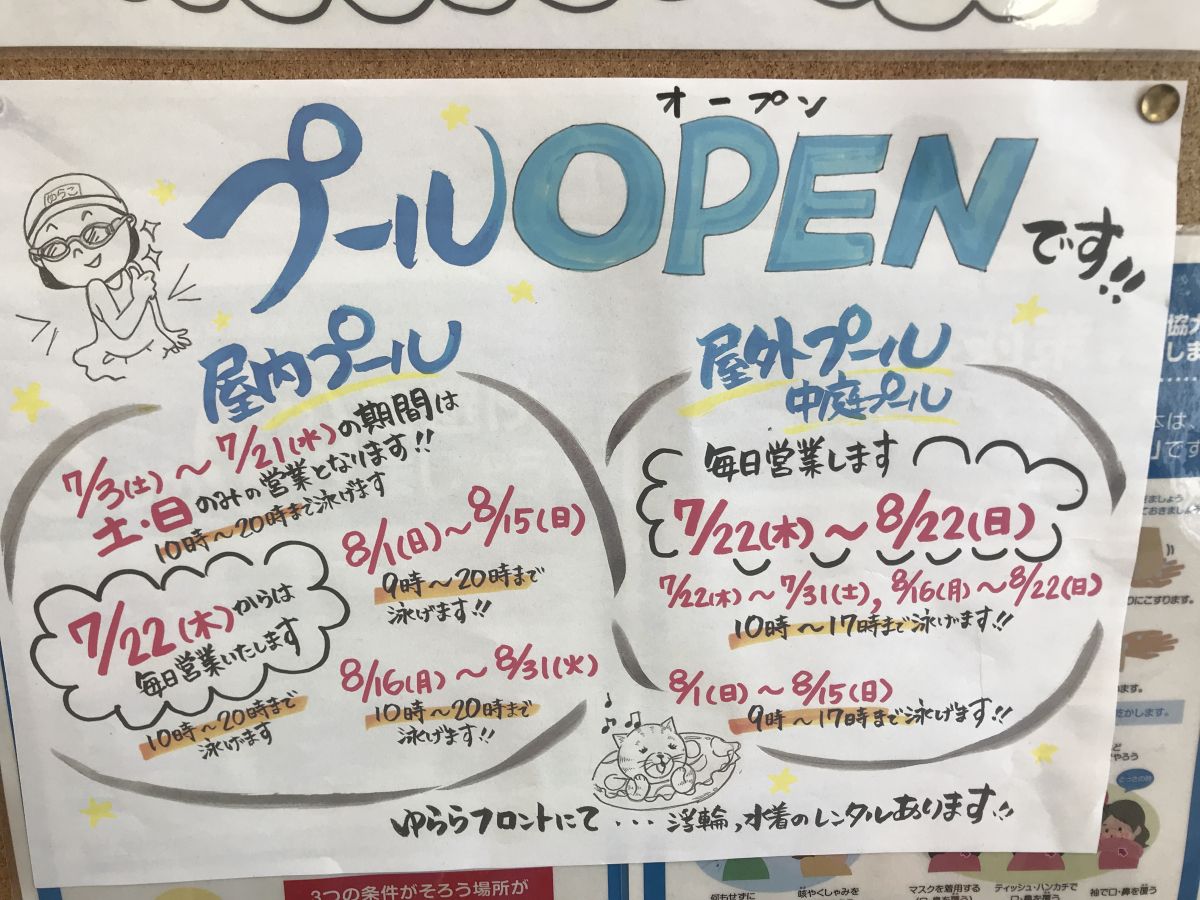 オープン
プールOPENです!!
ゆらこ
屋内プール
7/3(土)～7/21(水)の期間は
土・日のみの営業となります!!
10時～20時まで泳げます
7/22(木)からは
毎日営業いたします
10時～20時まで
泳げます
8/1(日)～8/15(日)
9時～20時まで
泳げます!!
8/16(月)～8/31(火)
10時～20時まで
泳げます!!
屋外プール
中庭プール
毎日営業します
7/22(木)～8/22(日)
7/22(木)～7/31(土),8/16(月)～8/22(日)
10時～17時まで泳げます!!
8/1(日)～8/15(日)
9時～17時まで泳げます!!
ゆららフロントにて・・・浮輪、水着のレンタルあります!!
3つの条件がそろう場所が
何もせずに
咳やくしゃみを
マスクを着用する
ティッシュ・ハンカチで
口・鼻を覆う
袖で口・鼻を覆う